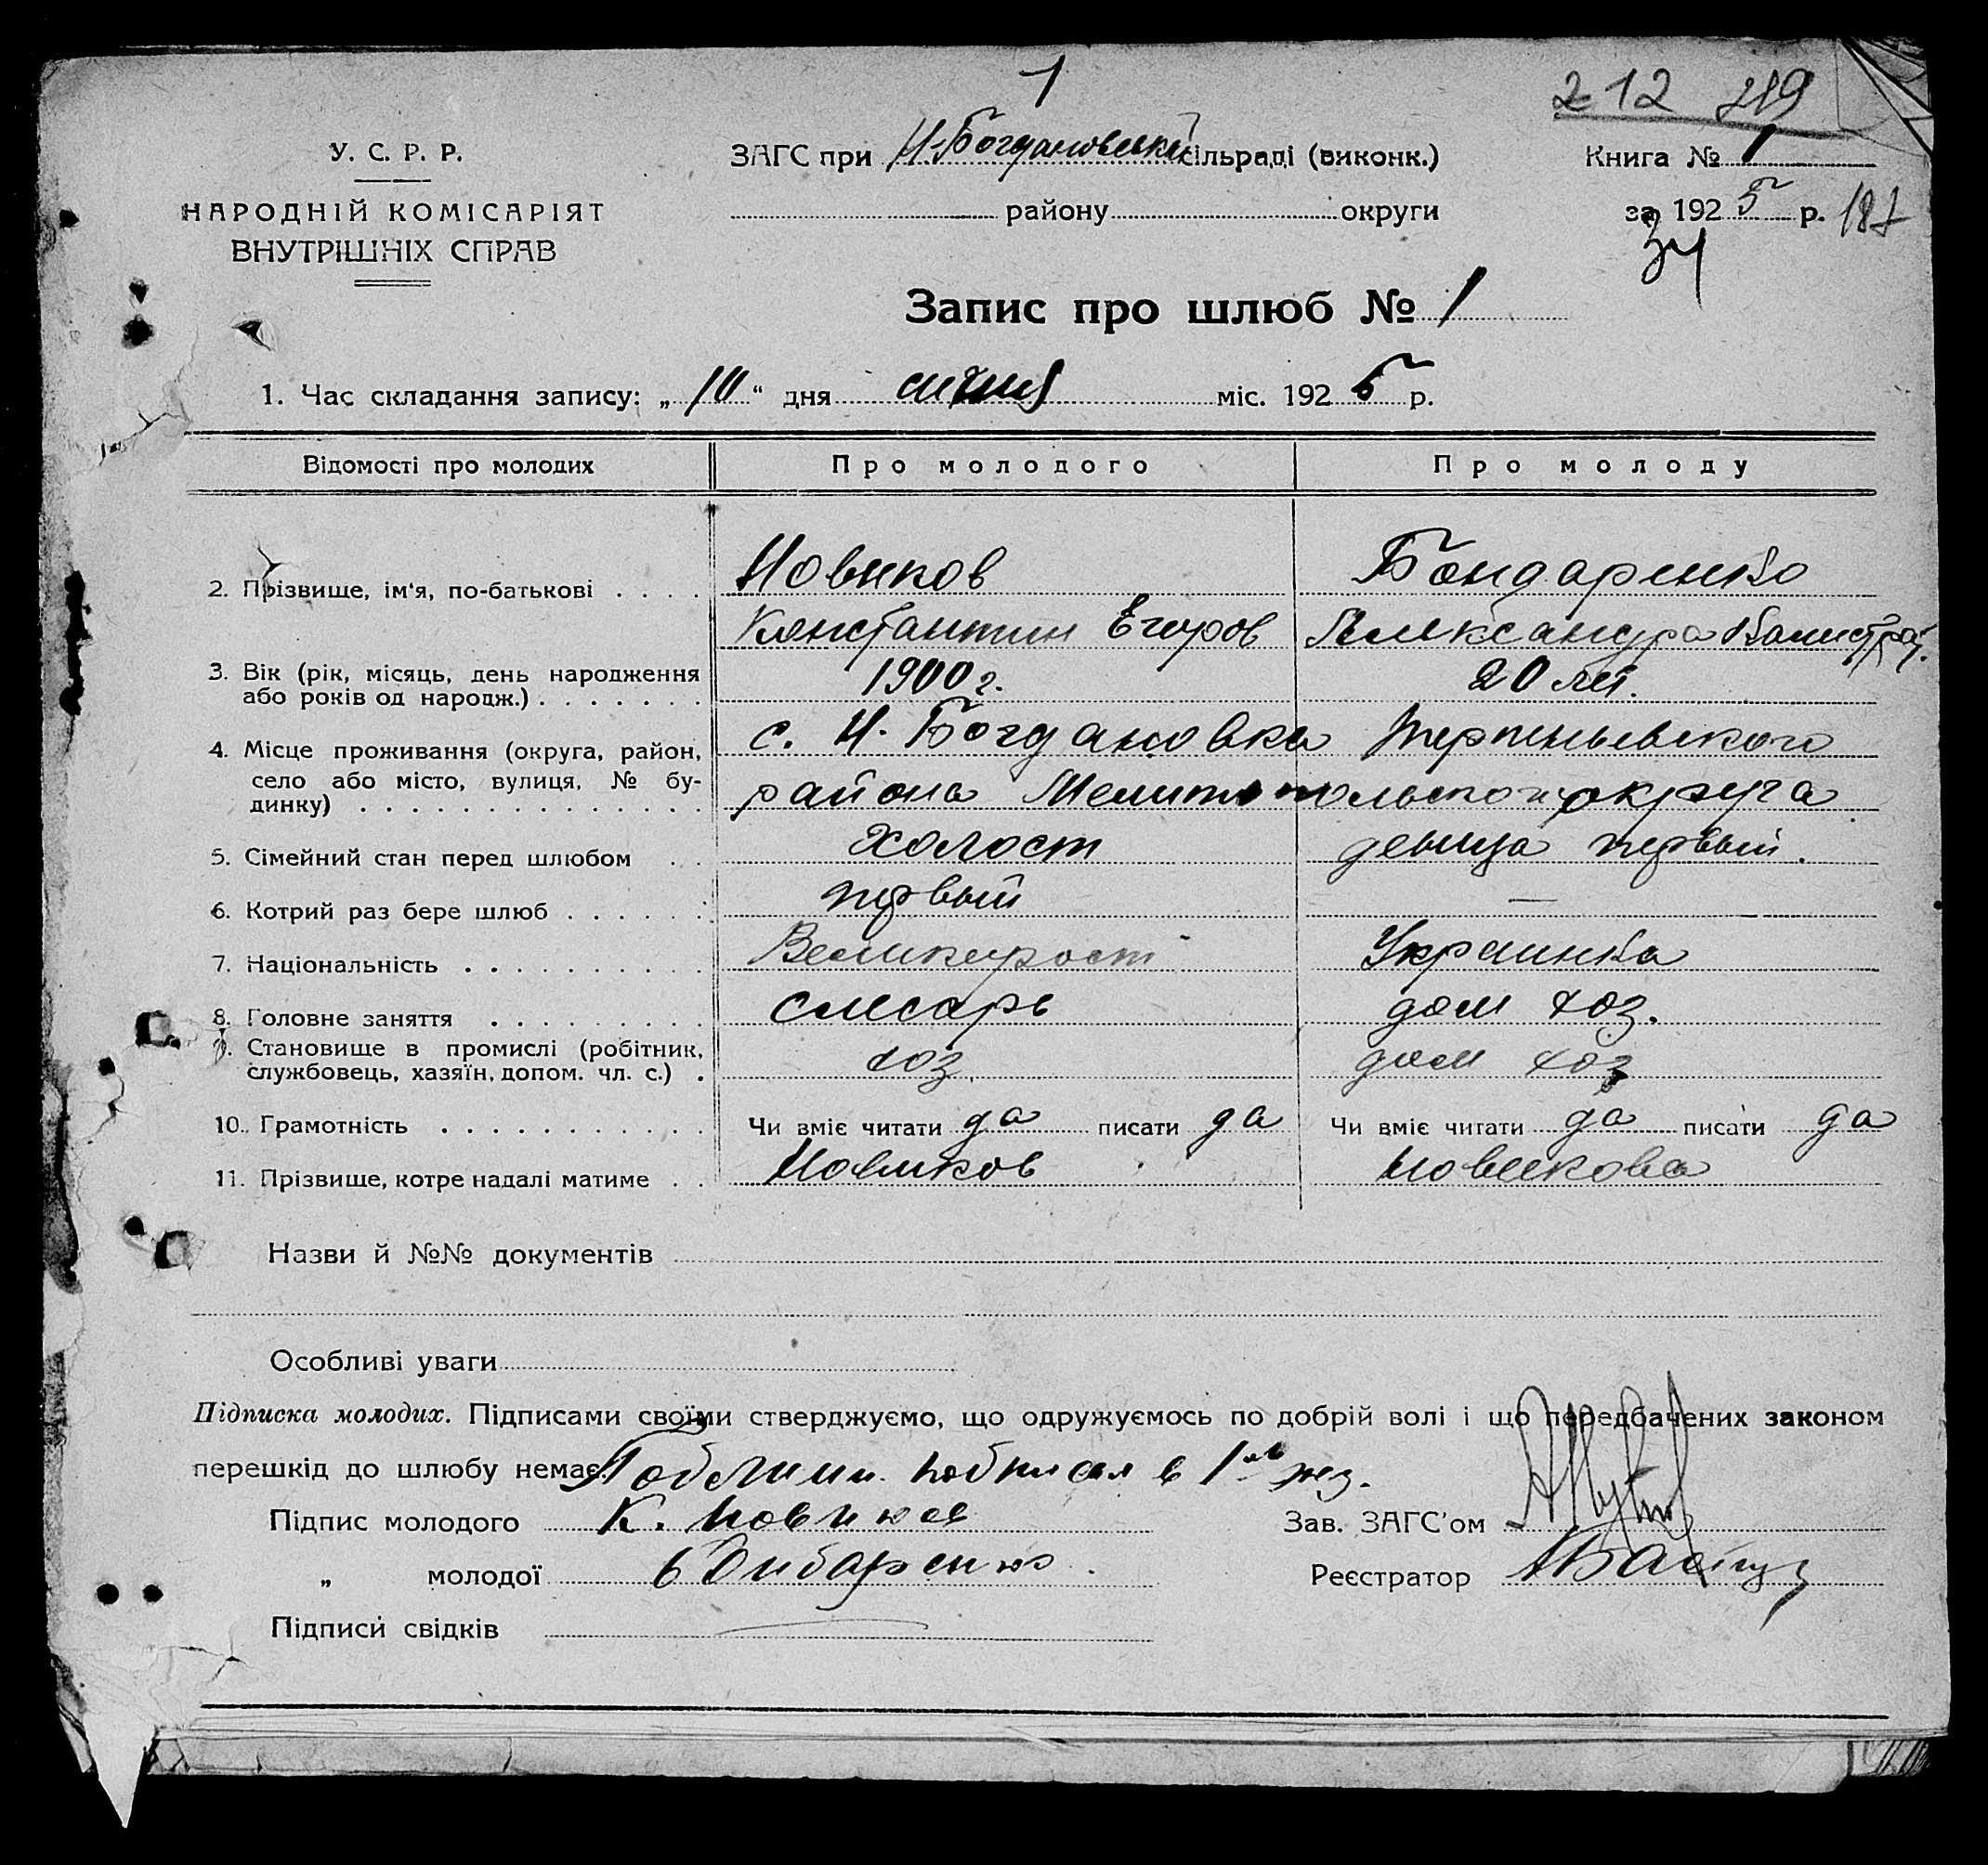 1
212 219
У. С. Р. Р.
ЗАГС при Н-Богдановській сільраді (виконк.)
Книга № 1
НАРОДНІЙ КОМІСАРІЯТ
ВНУТРІШНІХ СПРАВ
району округи
за 1925 р. 187
34
Запис про шлюб № 1
1. Час складання запису: „10“ дня січня міс. 1925 р.
Відомості про молодих Про молодого Про молоду
2. Прізвище, ім'я, по-батькові Новиков Бондаренко
Константин Егоров Александра Калистрат.
3. Вік (рік, місяць, день народження
або років од народж.) 1900 г. 20 лет.
4. Місце проживання (округа, район, с. Н. Богдановка Терпеньевского
село або місто, вулиця, № бу-
динку) района Мелитопольского округа
5. Сімейний стан перед шлюбом холост девица первый.
6. Котрий раз бере шлюб первый —
7. Національність Великорост Украинка
8. Головне заняття слесарь дом хоз.
9. Становище в промислі (робітник,
службовець, хазяїн, допом. чл. с.) хоз. дом хоз
10. Грамотність Чи вміє читати да писати да Чи вміє читати да писати да
11. Прізвище, котре надалі матиме Новиков Новикова
Назви й №№ документів
Особливі уваги
Підписка молодих. Підписами своїми стверджуємо, що одружуємось по добрій волі і що передбачених законом
перешкід до шлюбу немає. Подлин. подписал в 1ом экз.
Підпис молодого К. Новиков Зав. ЗАГС'ом
„ молодої Бондаренко Реєстратор
Підписи свідків